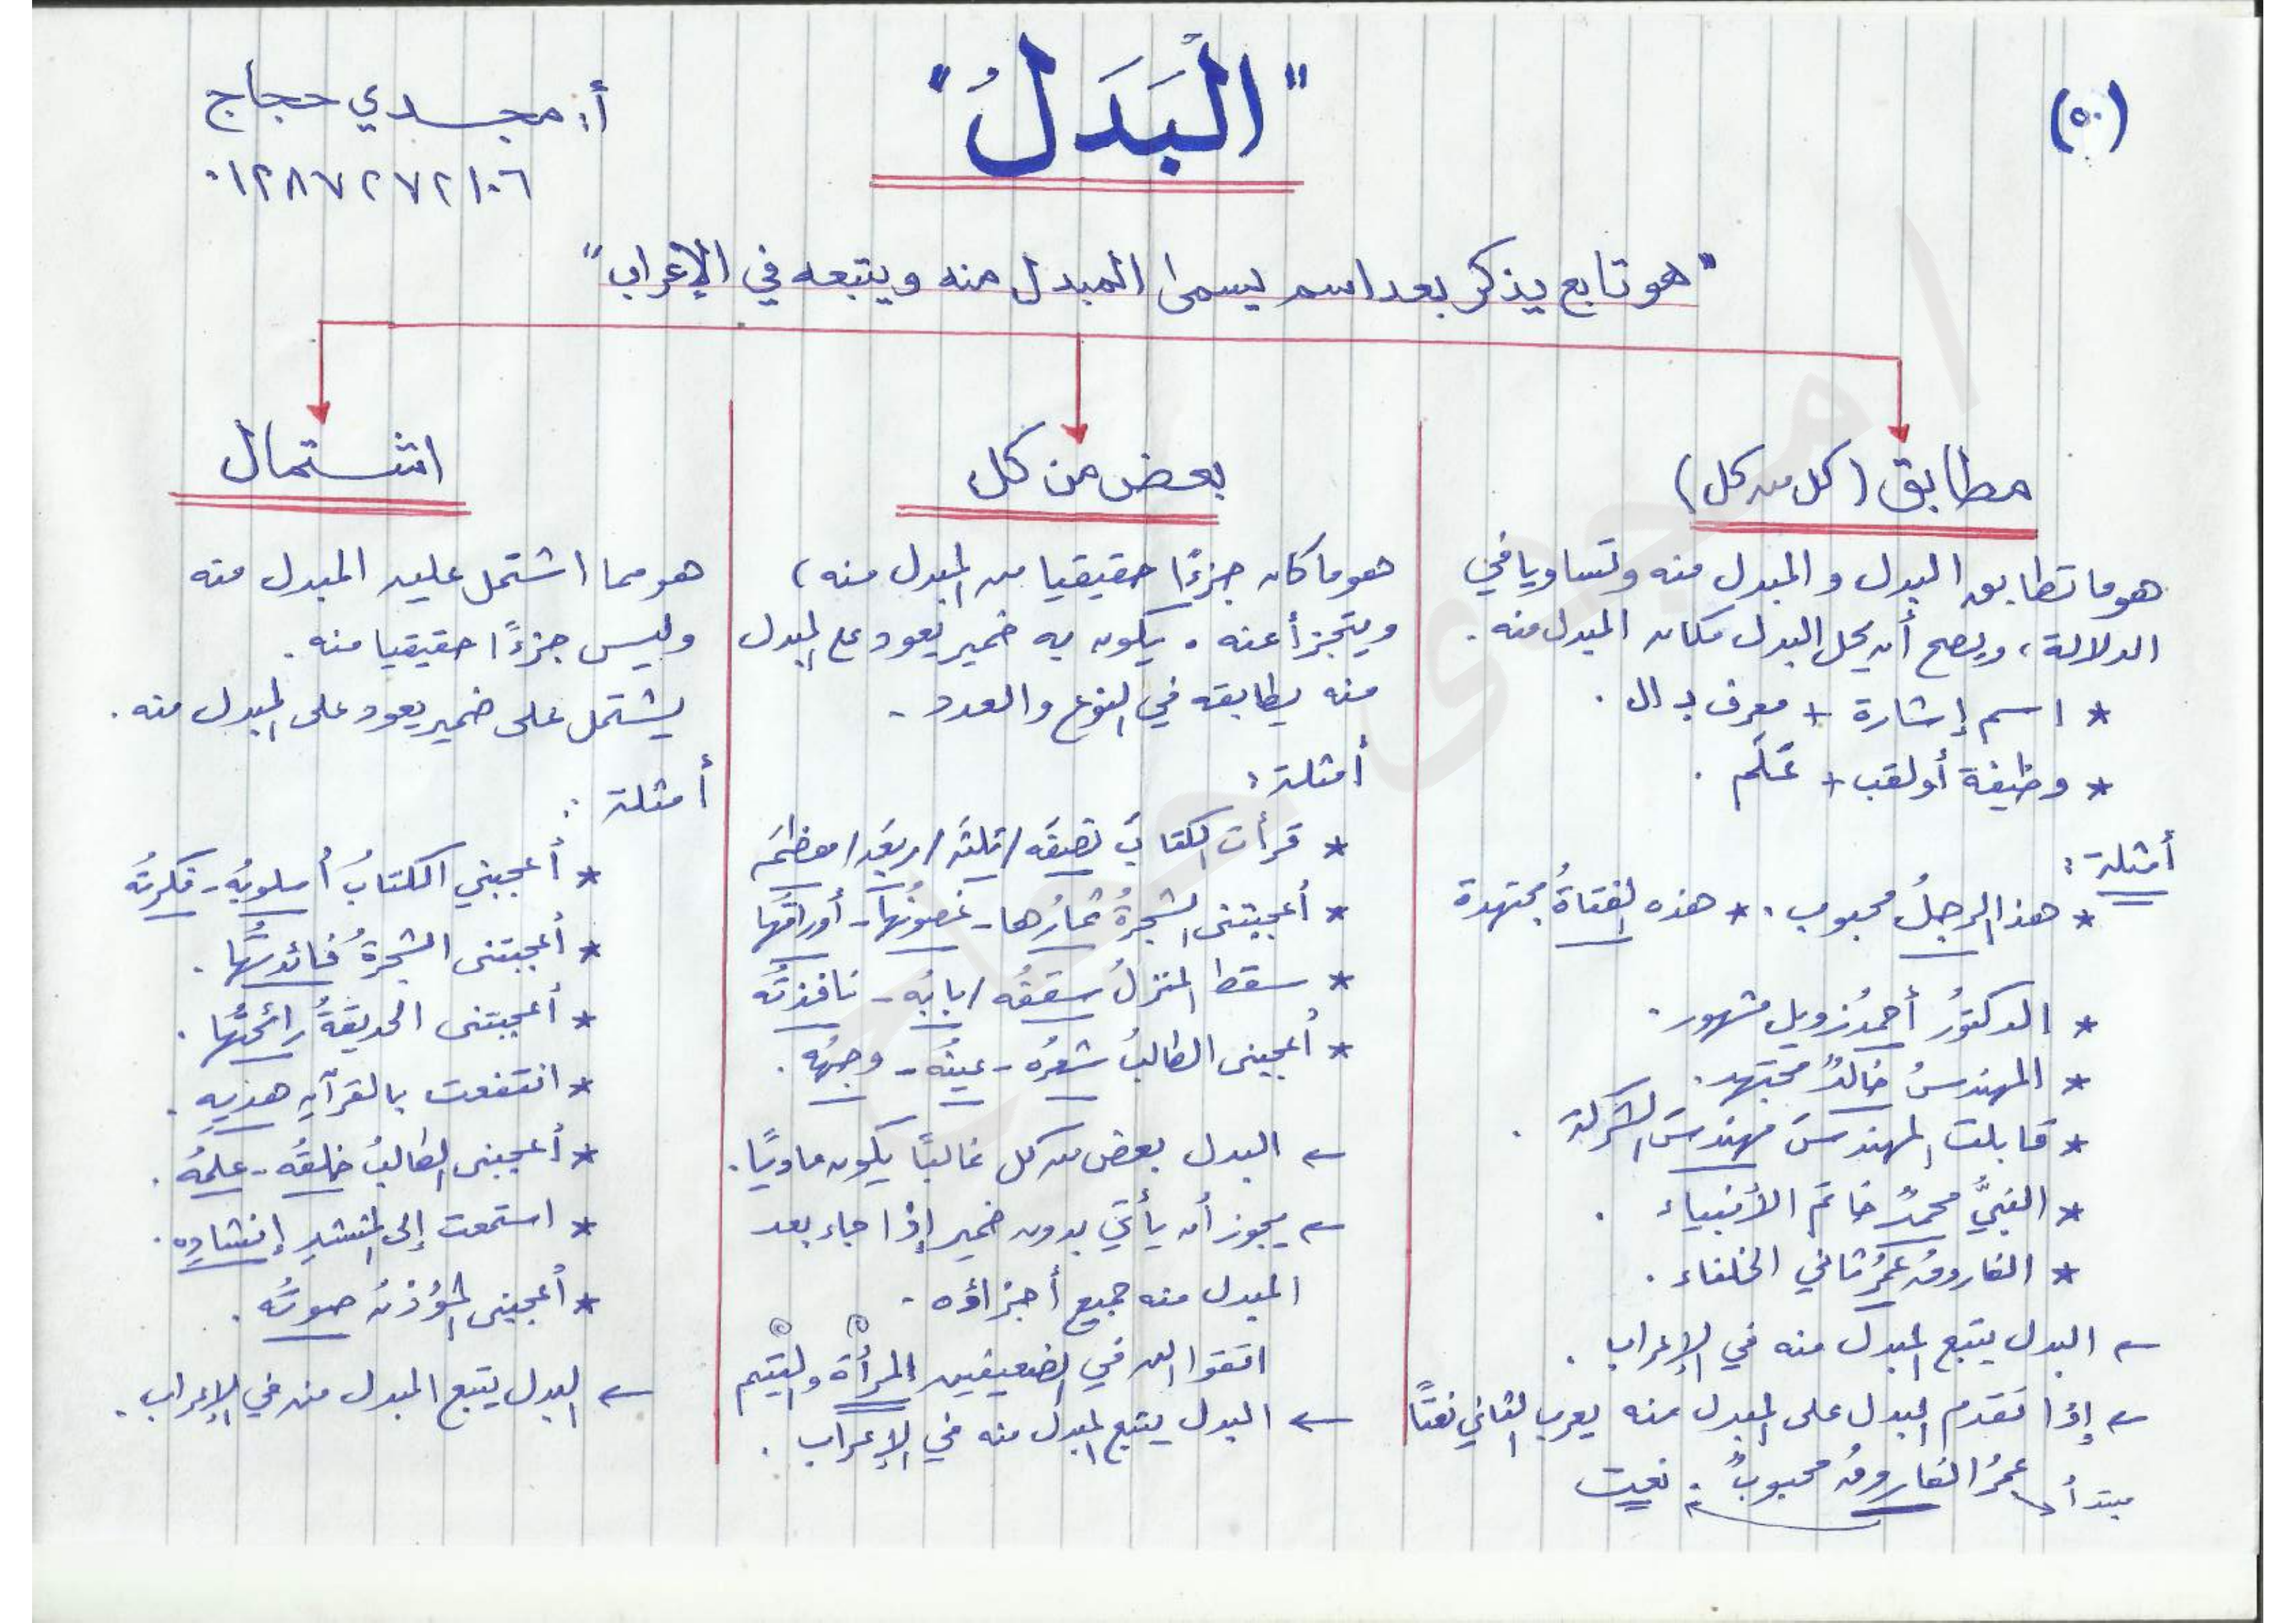 (٥٠)
"الْبَدَلُ"
أ: مجدي حجاج
٠١٢٨٧٢٧٢١٠٦
"هو تابع يذكر بعد اسم يسمى المبدل منه ويتبعه في الإعراب"
مطابق (كل من كل)
هو ما تطابق البدل والمبدل منه وتساويا في
الدلالة، ويصح أن يحل البدل مكان المبدل منه.
* اسم إشارة + معرف بـ ال.
* وظيفة أو لقب + عَلَم.
أمثلة:
* هذا الرجلُ محبوب. * هذه الفتاةُ مجتهدة
* الدكتورُ أحمدُ زويل مشهور.
* المهندسُ خالدٌ مجتهد.
* قابلت المهندسَ مهندسَ الشركة.
* النبيُّ محمدٌ خاتم الأنبياء.
* الفاروقُ عمرُ ثاني الخلفاء.
← البدل يتبع المبدل منه في الإعراب.
← إذا تقدم البدل على المبدل منه يعرب الثاني نعتًا
مبتدأ عمرُ الفاروقُ محبوبٌ. نعت
بعض من كل
هو ما كان جزءًا حقيقيا من المبدل منه،
ويتجزأ عنه. يكون به ضمير يعود على المبدل
منه يطابقه في النوع والعدد.
أمثلة:
* قرأت الكتابَ نصفَه / ثلثَه / ربعَه / معظمَه
* أعجبتني الشجرةُ ثمارُها - غصونُها - أوراقُها
* سقط المنزلُ سقفُه / بابُه - نافذتُه
* أعجبني الطالبُ شعرُه - عينُه - وجهُه.
← البدل بعض من كل غالبًا يكون ماديًا.
← يجوز أن يأتي بدون ضمير إذا جاء بعد
المبدل منه جميع أجزاؤه.
اتقوا الله في الضعيفين المرأة واليتيم
← البدل يتبع المبدل منه في الإعراب.
اشتمال
هو مما اشتمل عليه المبدل منه
وليس جزءًا حقيقيا منه.
يشتمل على ضمير يعود على المبدل منه.
أمثلة:
* أعجبني الكتابُ أسلوبُه - فكرتُه
* أعجبتنى الشجرةُ فائدتُها.
* أعجبتنى الحديقةُ رائحتُها.
* انتفعت بالقرآنِ هديِه.
* أعجبنى الطالبُ خلقُه - علمُه.
* استمعت إلى المنشدِ إنشادِه.
* أعجبنى المؤذنُ صوتُه.
← البدل يتبع المبدل منه في الإعراب.